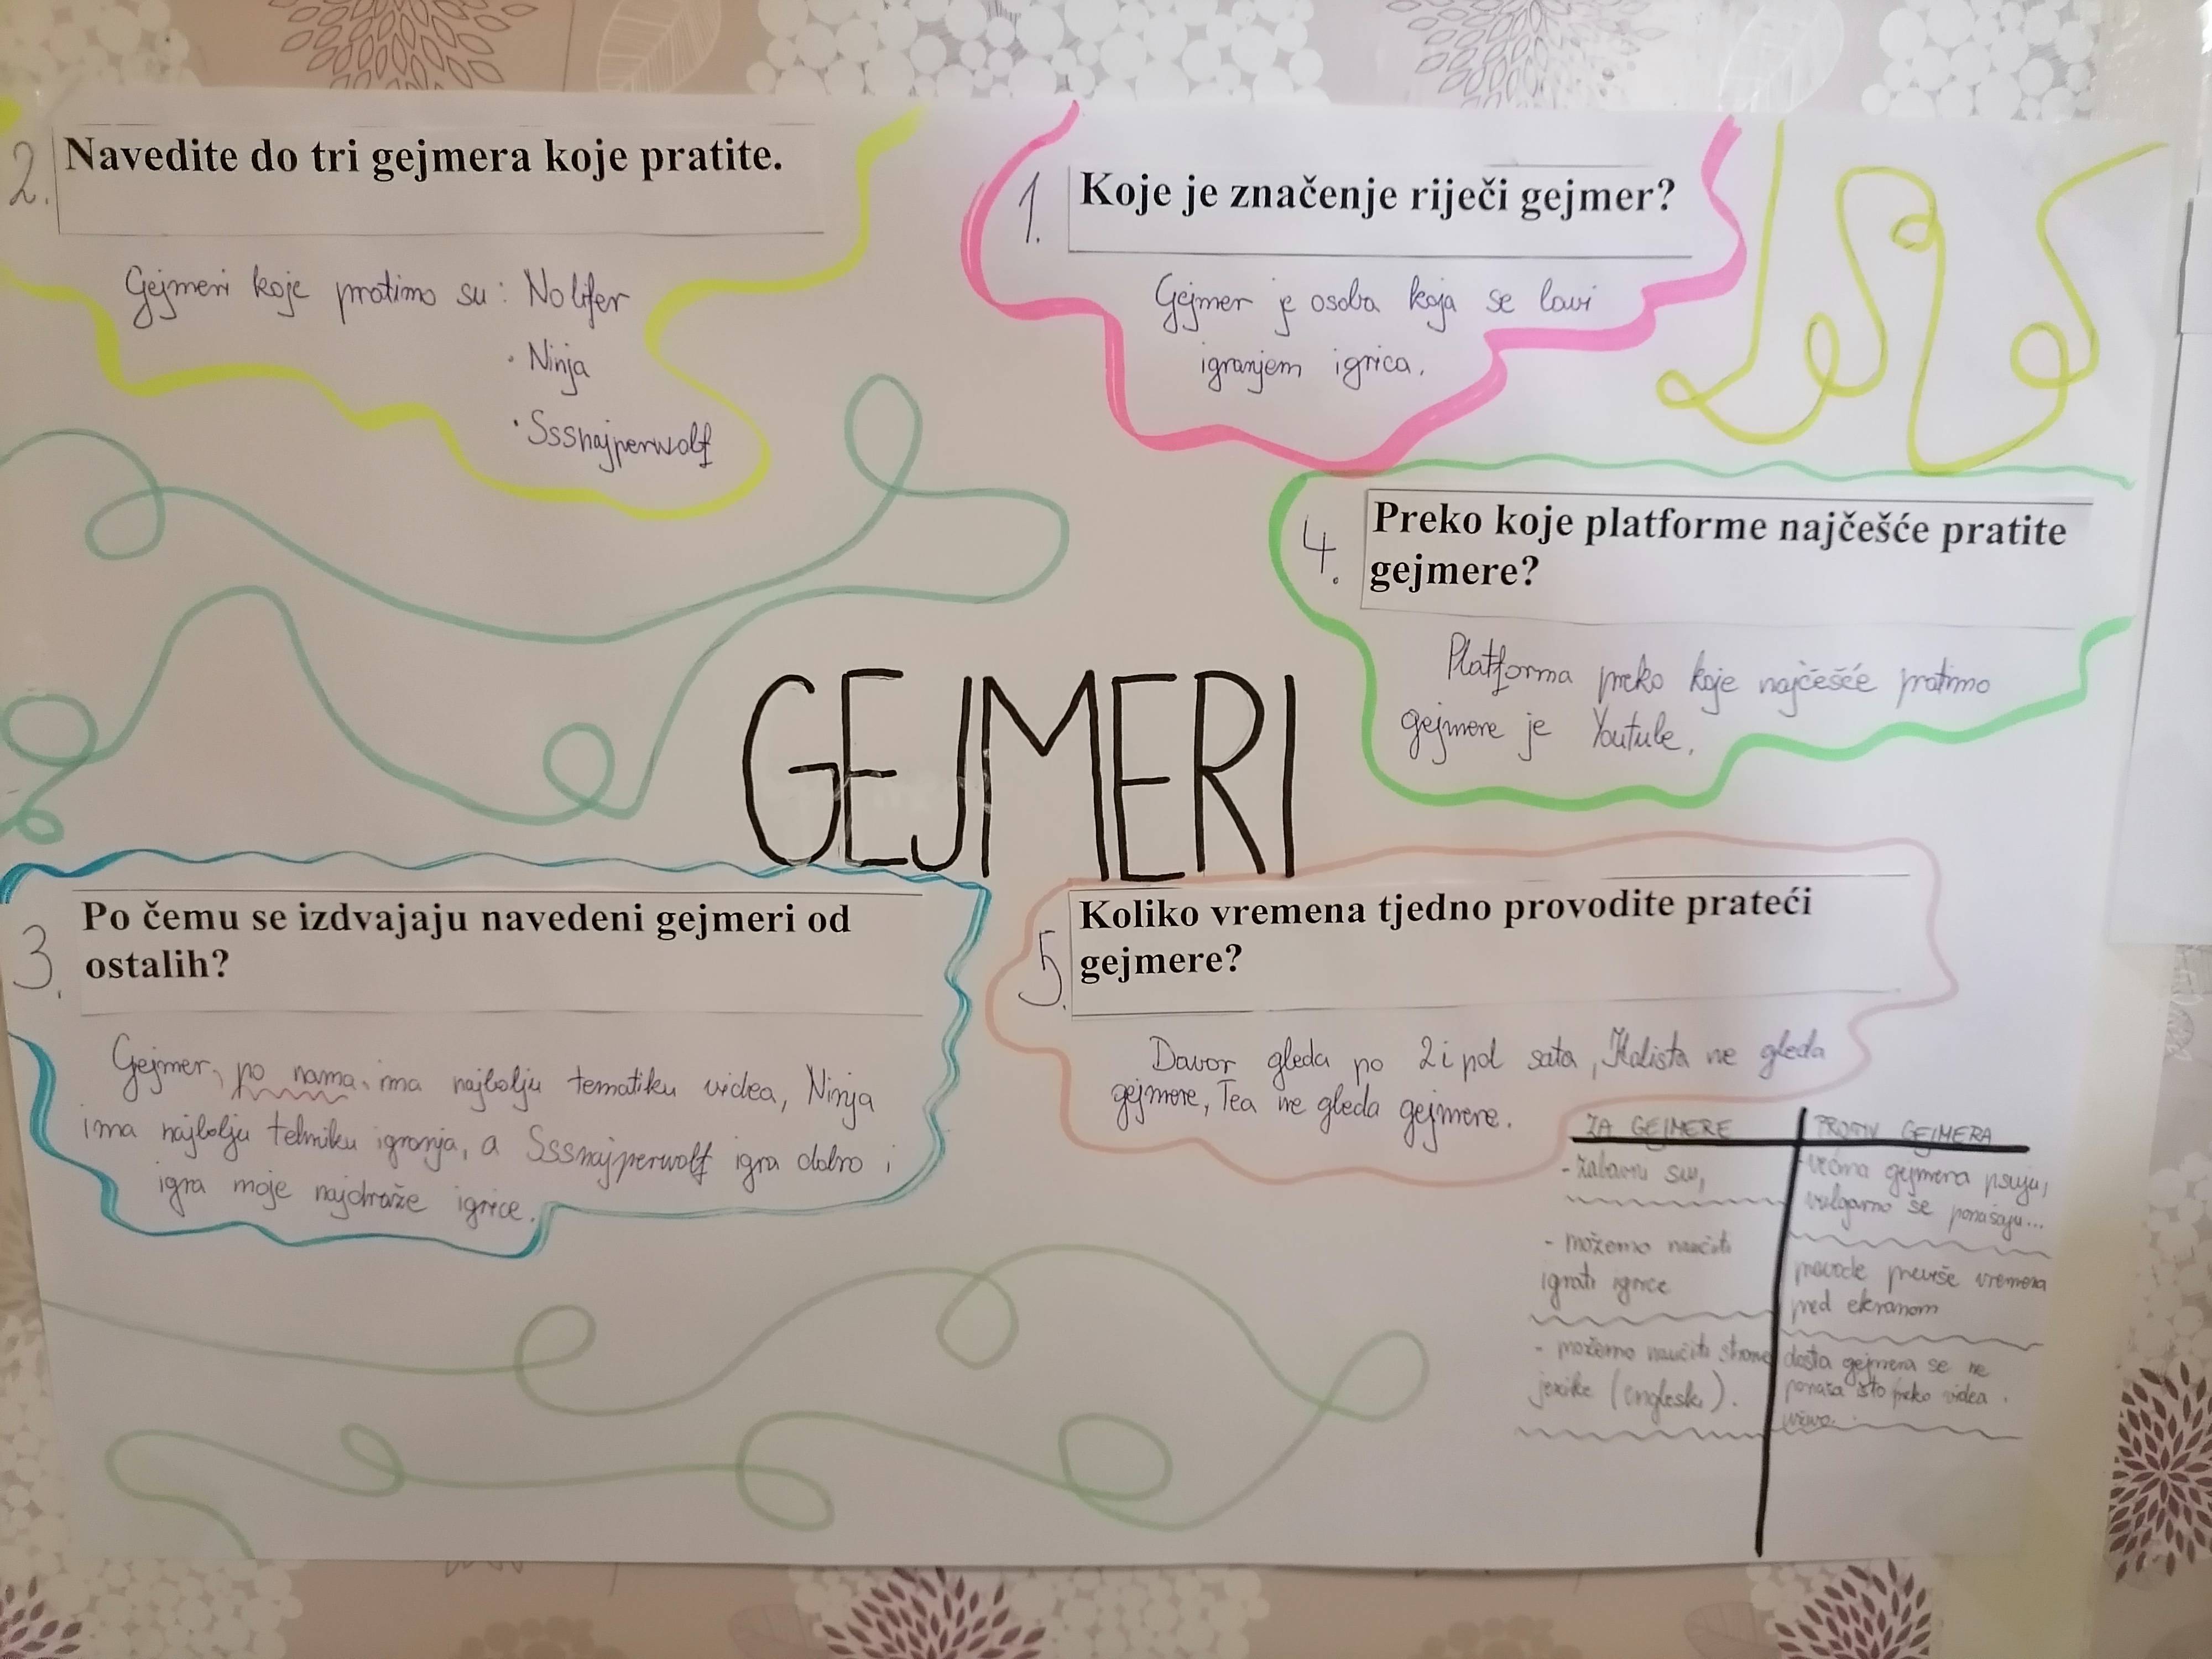 GEJMERI
1.
Koje je značenje riječi gejmer?
Gejmer je osoba koja se lavi
igranjem igrica.
2.
Navedite do tri gejmera koje pratite.
Gejmeri koje pratimo su: Nolifer
· Ninja
· Sssnajperwolf
3.
Po čemu se izdvajaju navedeni gejmeri od
ostalih?
Gejmer, po nama, ima najbolju tematiku videa, Ninja
ima najbolju tehniku igranja, a Sssnajperwolf igra dobro i
igra moje najdraže igrice.
4.
Preko koje platforme najčešće pratite
gejmere?
Platforma preko koje najčešće pratimo
gejmere je Youtube.
5.
Koliko vremena tjedno provodite prateći
gejmere?
Davor gleda po 2 i pol sata, Kalista ne gleda
gejmere, Tea ne gleda gejmere.
ZA GEJMERE
- zabavni su,
- možemo naučiti
igrati igrice
- možemo naučiti strane
jezike (engleski).
PROTIV GEJMERA
- većina gejmera psuju,
vulgarno se ponašaju...
provode previše vremena
pred ekranom
dosta gejmera se ne
ponaša isto preko videa
uživo.